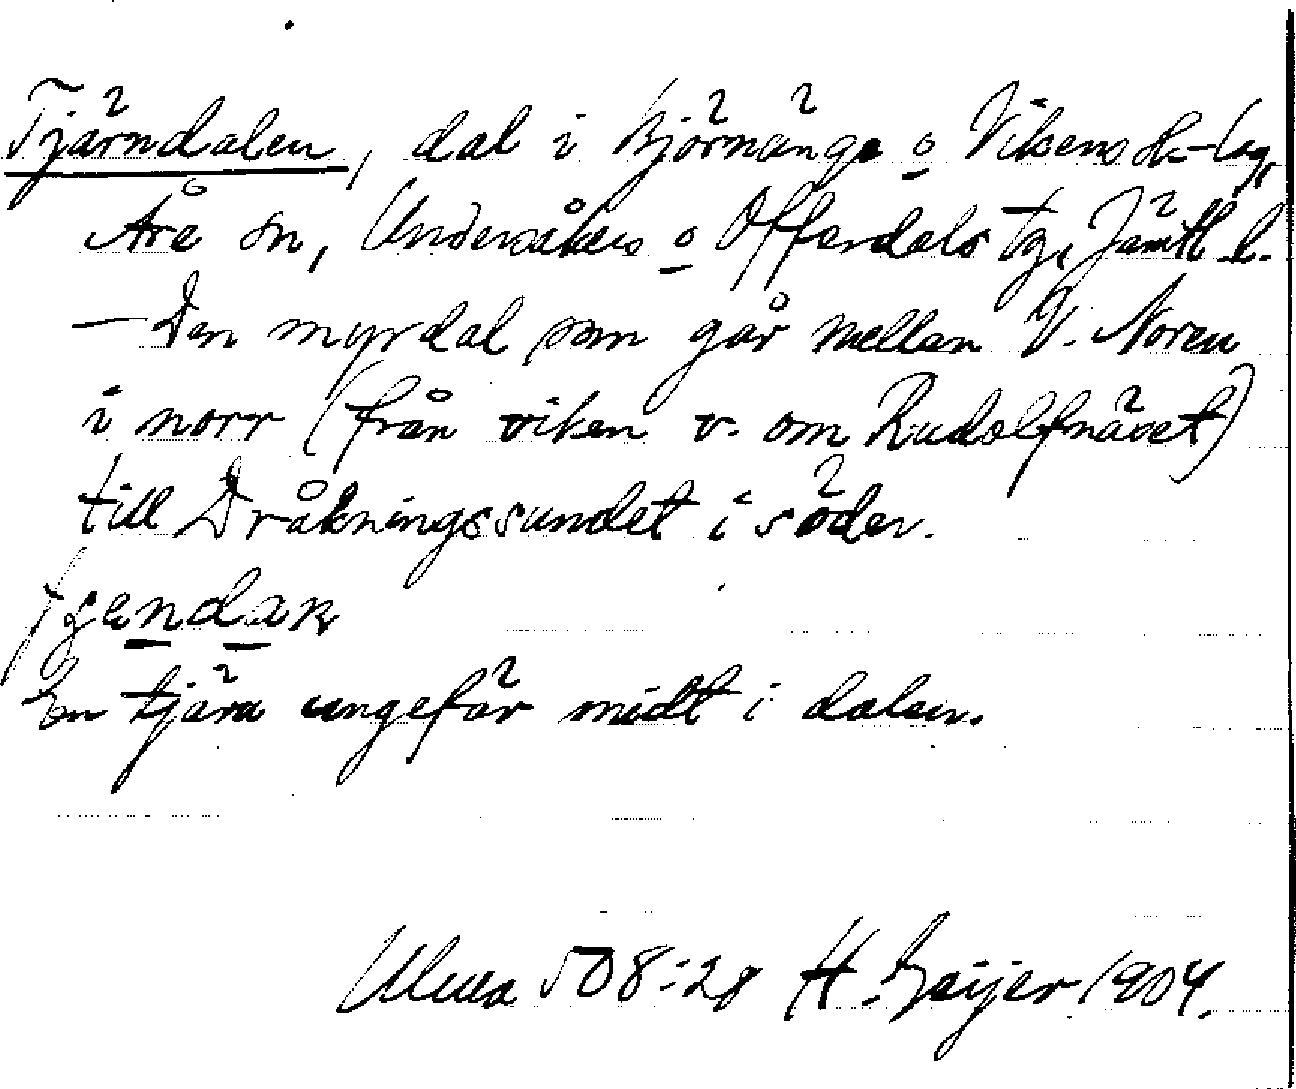 Tjärndalen, dal i Björnänge o Vikens sk-lag,
Åre sn, Undersåkers o Offerdals tg, Jämtl. l.
— Den myrdal som går mellan V. Noren
i norr (från viken v. om Rudolfnävet)
till Dråkningssundet i söder.
En tjärn ungefär midt i dalen.
Ulma 508:28 H. Geijer 1904.